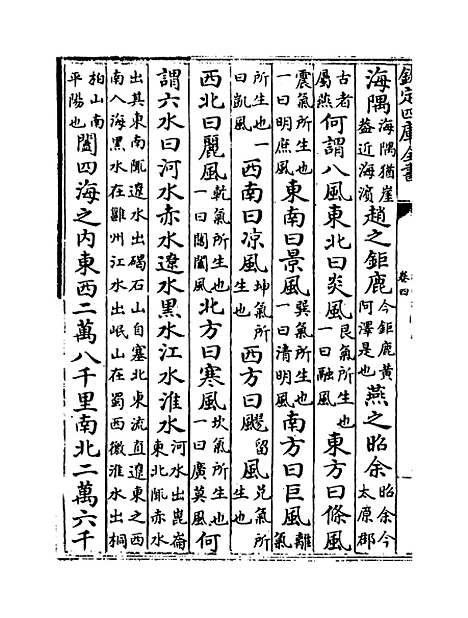 欽定四庫全書 卷四
海隅海隅猶崖葢近海濱趙之鉅鹿今鉅鹿黃阿澤是也燕之昭余昭余今太原郡
古者屬燕何謂八風東北曰炎風艮氣所生也一曰融風東方曰條風
震氣所生也一曰明庶風東南曰景風巽氣所生也一曰清明風南方曰巨風離氣
所生也一曰凱風西南曰凉風坤氣所生也西方曰飂留風兌氣所生也
西北曰麗風乾氣所生也一曰閶闔風北方曰寒風坎氣所生也一曰廣莫風何
謂六水曰河水赤水遼水黑水江水淮水河水出崑崙東北陬赤水
出其東南陬遼水出碣石山自塞北東流直遼東之西南入海黑水在雝州江水出岷山在蜀西徼淮水出桐
柏山南平陽也闔四海之內東西二萬八千里南北二萬六千